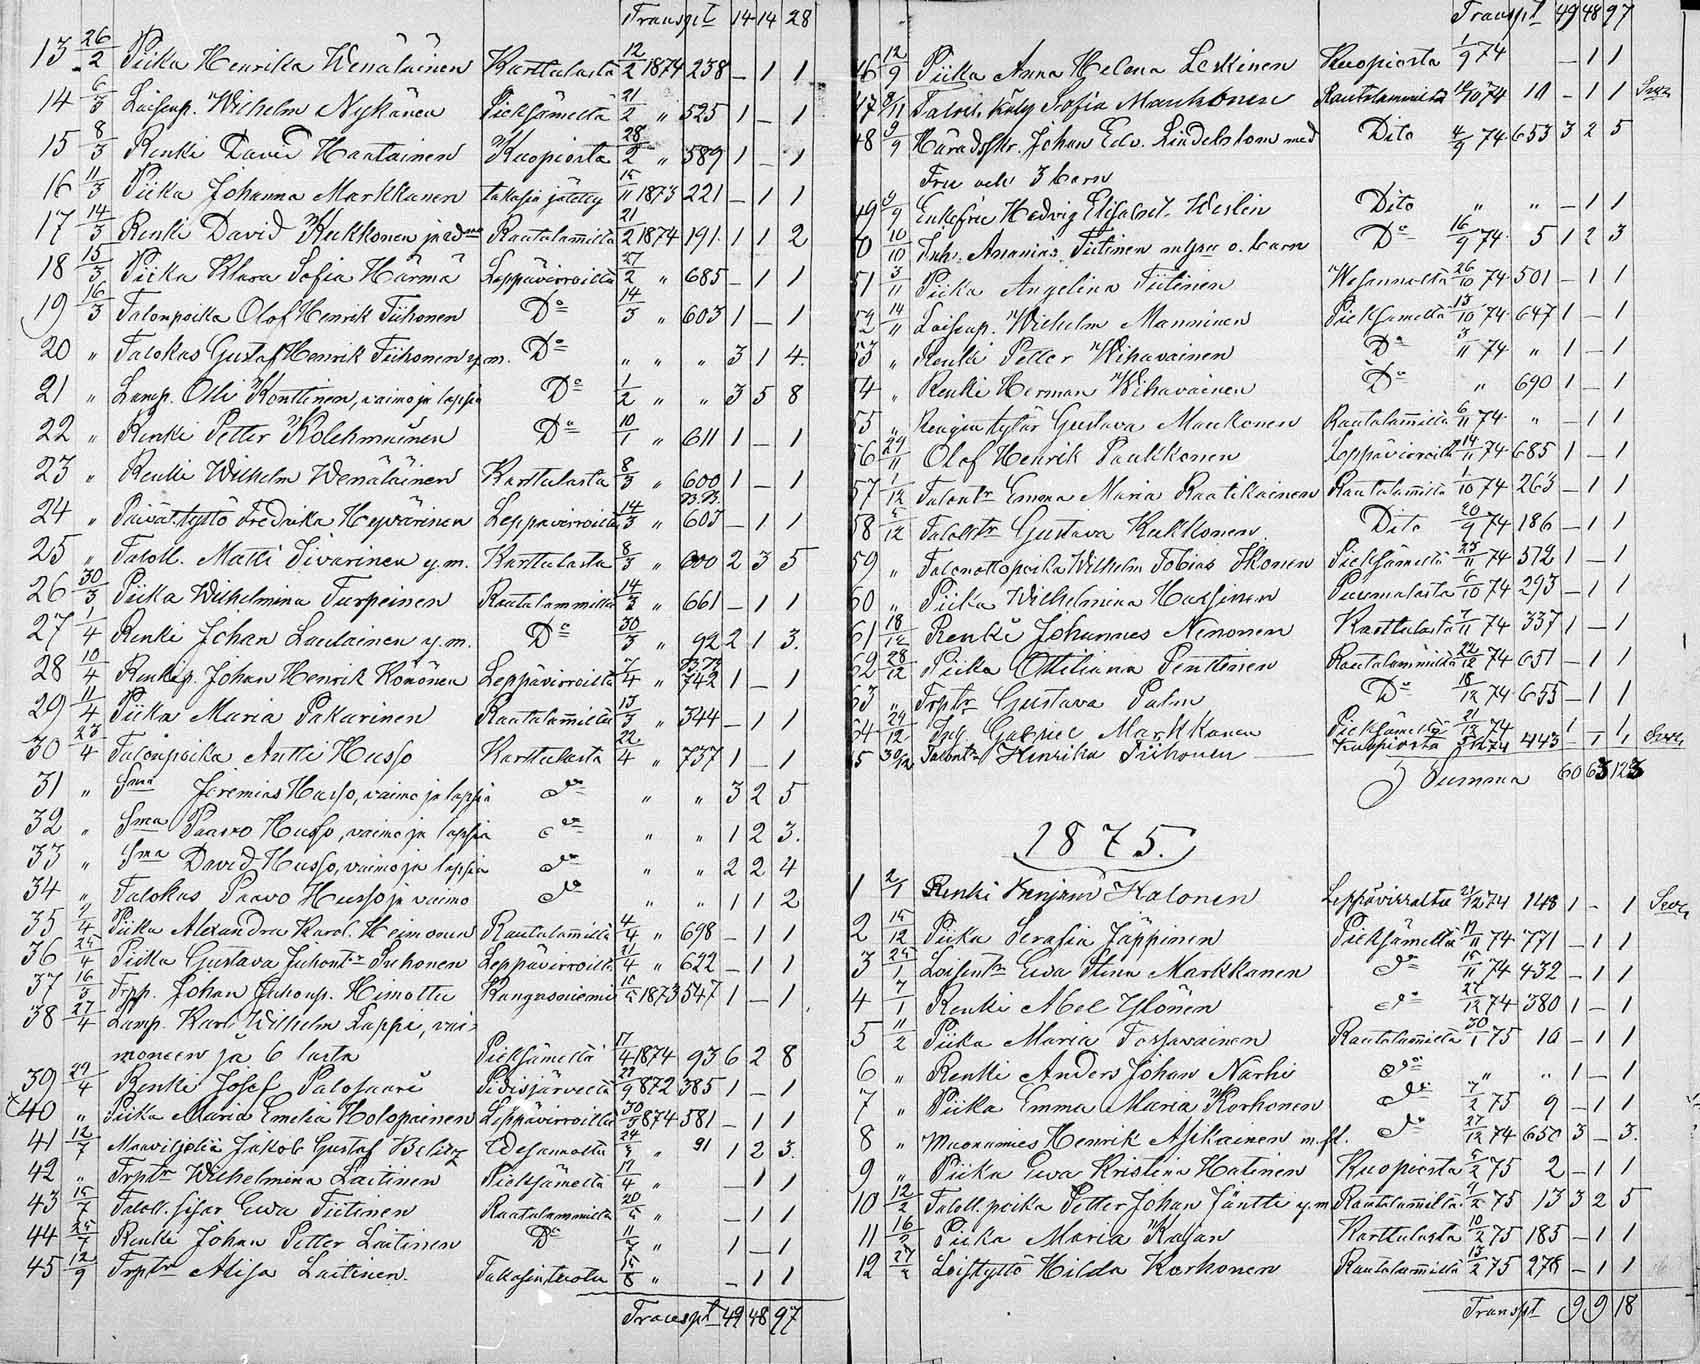 Transpt 14 14 28
13 26/2 Piika Henrika Wenäläinen Karttulasta 12/2 1874 238 – 1 1
14 6/3 Loisenp. Wilhelm Nykänen Pieksämeltä 21/2 " 525 1 – 1
15 8/3 Renki David Hantainen Kuopiosta 28/2 " 589 1 – 1
16 11/3 Piika Johanna Markkanen takasin jätetty 15/11 1873 221 – 1 1
17 14/3 Renki David Kukkonen ja Rautalamilta 21/2 1874 191 1 1 2
18 15/3 Piika Klara Sofia Härmä Leppävirroilta 27/2 " 685 – 1 1
19 16/3 Talonpoika Olof Henrik Tiihonen Do 14/3 " 603 1 – 1
20 " Talokas Gustaf Henrik Tiihonen y.m. Do " " " 3 1 4.
21 " Lamp. Olli Konttinen, vaimo ja lapsia Do 1/2 " " 3 5 8
22 " Renki Petter Kolehmainen Do 10/1 " 611 1 – 1
23 " Renki Wilhelm Wenäläinen Karttulasta 8/3 " 600 1 – 1
24 " Päivät.tyttö Fredrika Heyvärinen Leppävirroilta 14/3 " 603 – 1 1
25 " Taloll. Matti Sivarinen y.m. Karttulasta 8/3 " 600 2 3 5
26 30/3 Piika Wilhelmina Turpeinen Rautalammilta 14/3 " 661 – 1 1
27 1/4 Renki Johan Laulainen y.m. Do 30/3 " 92 2 1 3.
28 10/4 Renkip. Johan Henrik Könönen Leppävirroilta 7/4 " 742 1 – 1
29 11/4 Piika Maria Pakarinen Rautalamilta 13/3 " 344 – 1 1
30 23/4 Talonpoika Antti Husso Karttulasta 22/4 " 737 1 – 1
31 " Sma Jeremias Husso, vaimo ja lapsia do " " 3 2 5
32 " Sma Paavo Husso, vaimo ja lapsia do " " 1 2 3.
33 " Sma David Husso, vaimo ja lapsia do " " 2 2 4
34 " Talokas Paavo Husso ja vaimo do " " 1 1 2
35 7/4 Piika Alexandra Karol. Heimonen Rautalamilta 4/4 " 698 – 1 1
36 25/4 Piika Gustava Juhontr Juhonen Leppävirroilta 21/4 " 622 – 1 1
37 16/5 Frpp. Johan Juhonp. Himottu Kangasniemi 15/5 1873 547 1 – 1
38 27/4 Lamp. Karl Wilhelm Lappi, vai-
moneen ja 6 lasta Pieksämeltä 17/4 1874 93 6 2 8
39 29/4 Renki Josef Palosaari Pidisjärveltä 22/9 872 385 1 – 1
40 " Piika Maria Emelia Holopainen Leppävirroilta 30/3 874 581 – 1 1
41 12/7 Maaviljeliä Jakob Gustaf Belitz 24/5 " 91 1 2 3.
42 " Trptr Wilhelmina Laitinen Pieksämeltä 17/4 " – 1 1
43 15/7 Taloll. sisar Ewa Tiitinen Rautalammilta 20/5 " – 1 1
44 Renki Johan Petter Laitinen Do 11/7 " 1 – 1
45 12/9 Trptr Alisa Laitinen. Takasin tuotu 15/8 " – 1 1
Transpt 49 48 97
Transpt 49 48 97
46 12/9 Piika Anna Helena Leskinen Kuopiosta 1/9 74 – 1 1
47 Sofia Maukonen Rautalammilta 10/10 74 10 – 1 1
48 9/9 Häradsskr. Johan Edv. Lindeblom med Dito 4/9 74 653 3 2 5
Fru och 3 barn
49 9/9 Enkefru Hedvig Elisabet Weslin Dito " " – 1 1
50 10/10 Inh. Ananias Tiitinen o. barn Do 16/9 74 5 1 2 3
51 3/11 Piika Angelina Tiitinen Wesannolta 26/10 74 501 – 1 1
52 14/11 Loisenp. Wilhelm Manninen Pieksämeltä 15/10 74 647 1 – 1
53 " Renki Petter Wihavainen Do 3/11 74 " 1 – 1
54 " Renki Herman Wihavainen Do " 690 1 – 1
55 " Rengin tytär Gustava Maukonen Rautalamilta 6/11 74 " – 1 1
56 29/11 Olof Henrik Paukkonen Leppävirroilta 14/11 74 685 1 – 1
57 1/12 Talontr Emma Maria Raatikainen Rautalamilta 1/10 74 263 – 1 1
58 Talolltr Gustava Kukkonen Dito 20/9 74 186 – 1 1
59 " Talonottopoika Wilhelm Tobias Ikonen Pieksämeltä 23/11 74 512 1 – 1
60 " Piika Wilhelmina Hassinen Puumalasta 6/10 74 293 – 1 1
61 18/12 Renki Johannes Nenonen Karttulasta 7/11 74 337 1 – 1
62 28/12 Piika Ottiliana Penttinen Rautalammilta 22/12 74 651 – 1 1
63 " Trptr Gustava Palm Do 18/12 74 655 – 1 1
64 29/12 Gabriel Markkanen Pieksämeltä 21/12 74 1 – 1
65 30/12 Talontr Henrika Tiihonen Kuopiosta 443 – 1 1
Summa 60 63 123
1875.
1 2/1 Renki Benjam Halonen Leppävirralta 21/12 74 148 1 – 1
2 15/12 Piika Serafia Jäppinen Pieksämeltä 19/11 74 771 – 1 1
3 25/1 Loisentr Ewa Stina Markkanen do 15/11 74 432 – 1 1
4 7/1 Renki Abel Ylönen do 27/12 74 380 1 – 1
5 11/2 Piika Maria Tossavainen Rautalammilta 30/1 75 10 – 1 1
6 " Renki Anders Johan Närhi do " " 1 – 1
7 " Piika Emma Maria Korhonen do 7/2 75 9 – 1 1
8 " Muonamies Henrik Asikainen m.fl. do 27/12 74 650 3 – 3.
9 " Piika Ewa Kristina Hatinen Kuopiosta 5/2 75 2 – 1 1
10 12/2 Taloll. poika Petter Johan Jäntti y.m Rautalamilta 9/2 75 13 3 2 5
11 16/2 Piika Maria Kasan Karttulasta 10/2 75 185 – 1 1
12 27/2 Loistyttö Hilda Korhonen Rautalammilta 13/2 75 278 – 1 1
Transpt 9 9 18